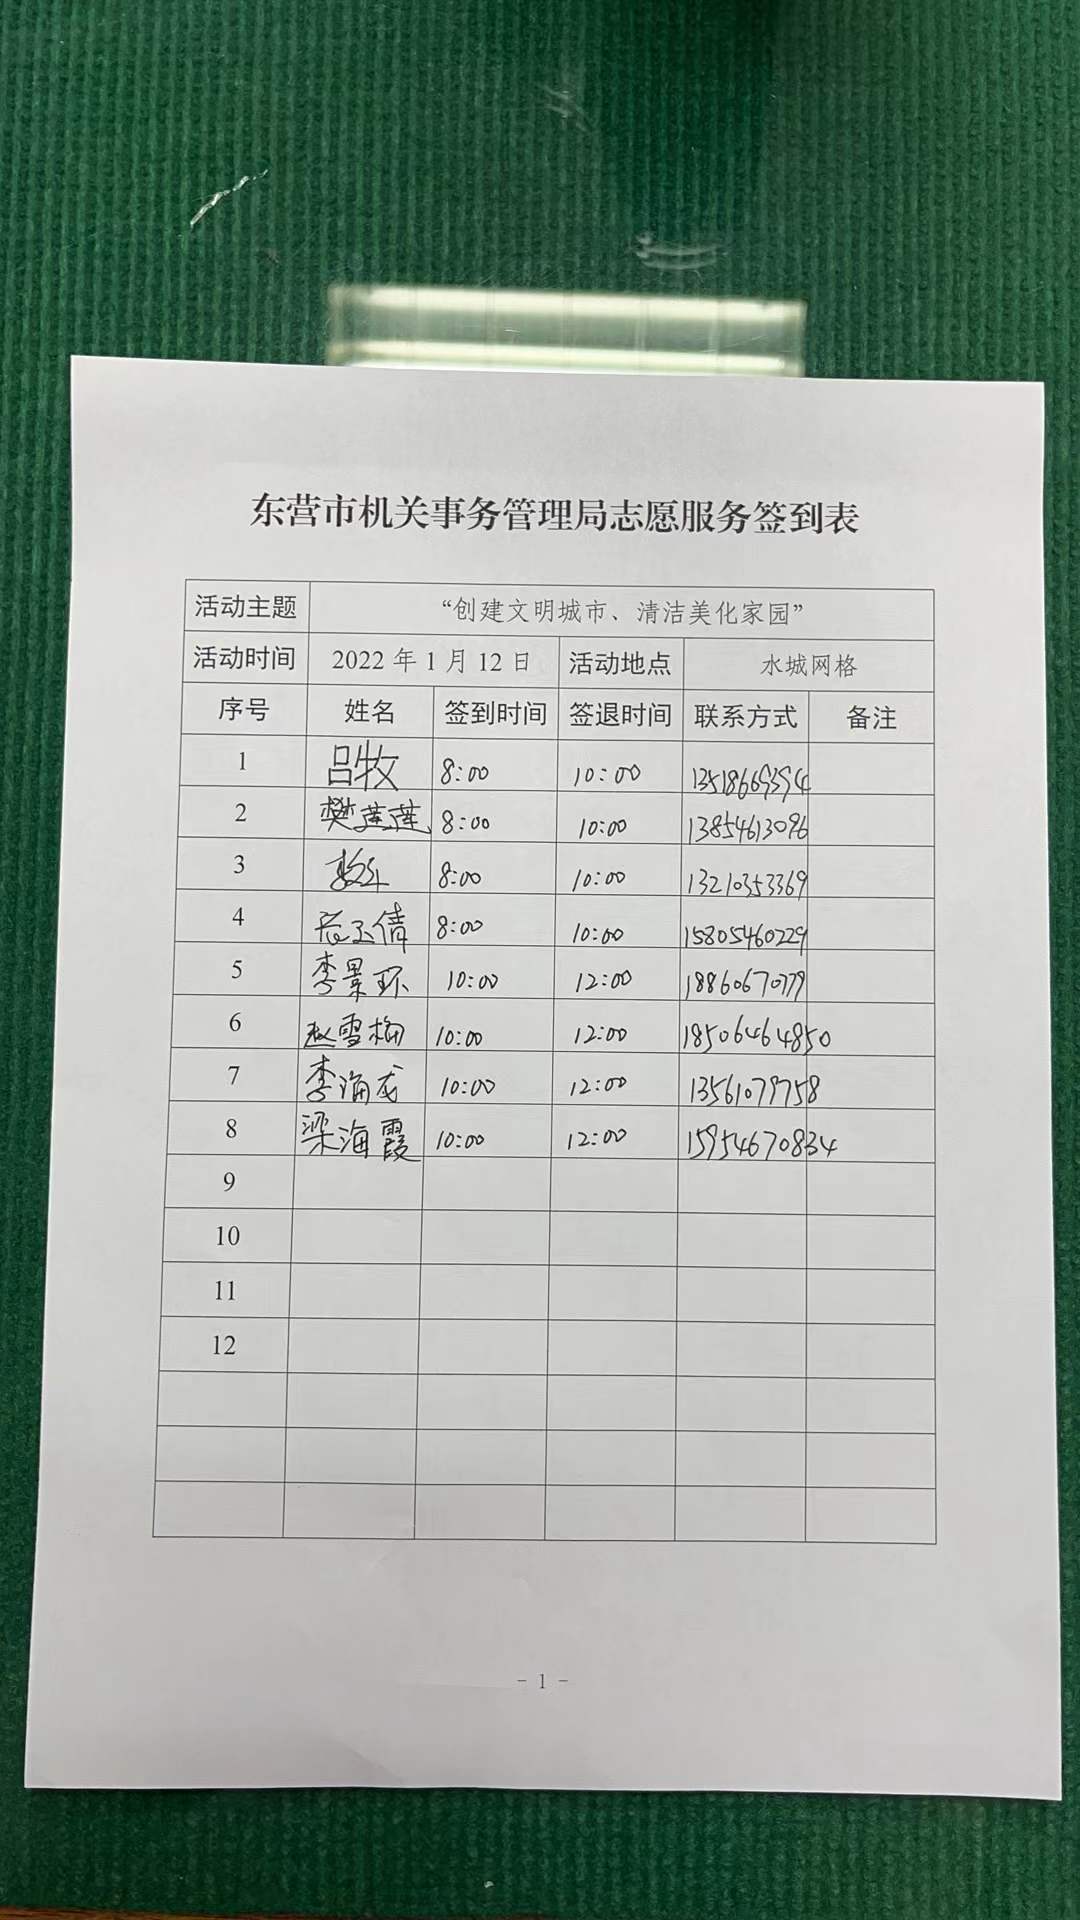 东营市机关事务管理局志愿服务签到表
活动主题 “创建文明城市、清洁美化家园”
活动时间 2022年1月12日 活动地点 水城网格
序号 姓名 签到时间 签退时间 联系方式 备注
1 吕牧 8:00 10:00 13518669394
2 樊莲莲 8:00 10:00 13854613096
3 8:00 10:00 13210353369
4 玉倩 8:00 10:00 15805460229
5 李景环 10:00 12:00 18860670779
6 赵雪梅 10:00 12:00 18506464850
7 李海龙 10:00 12:00 13561079758
8 梁海霞 10:00 12:00 15954670834
9
10
11
12
- 1 -